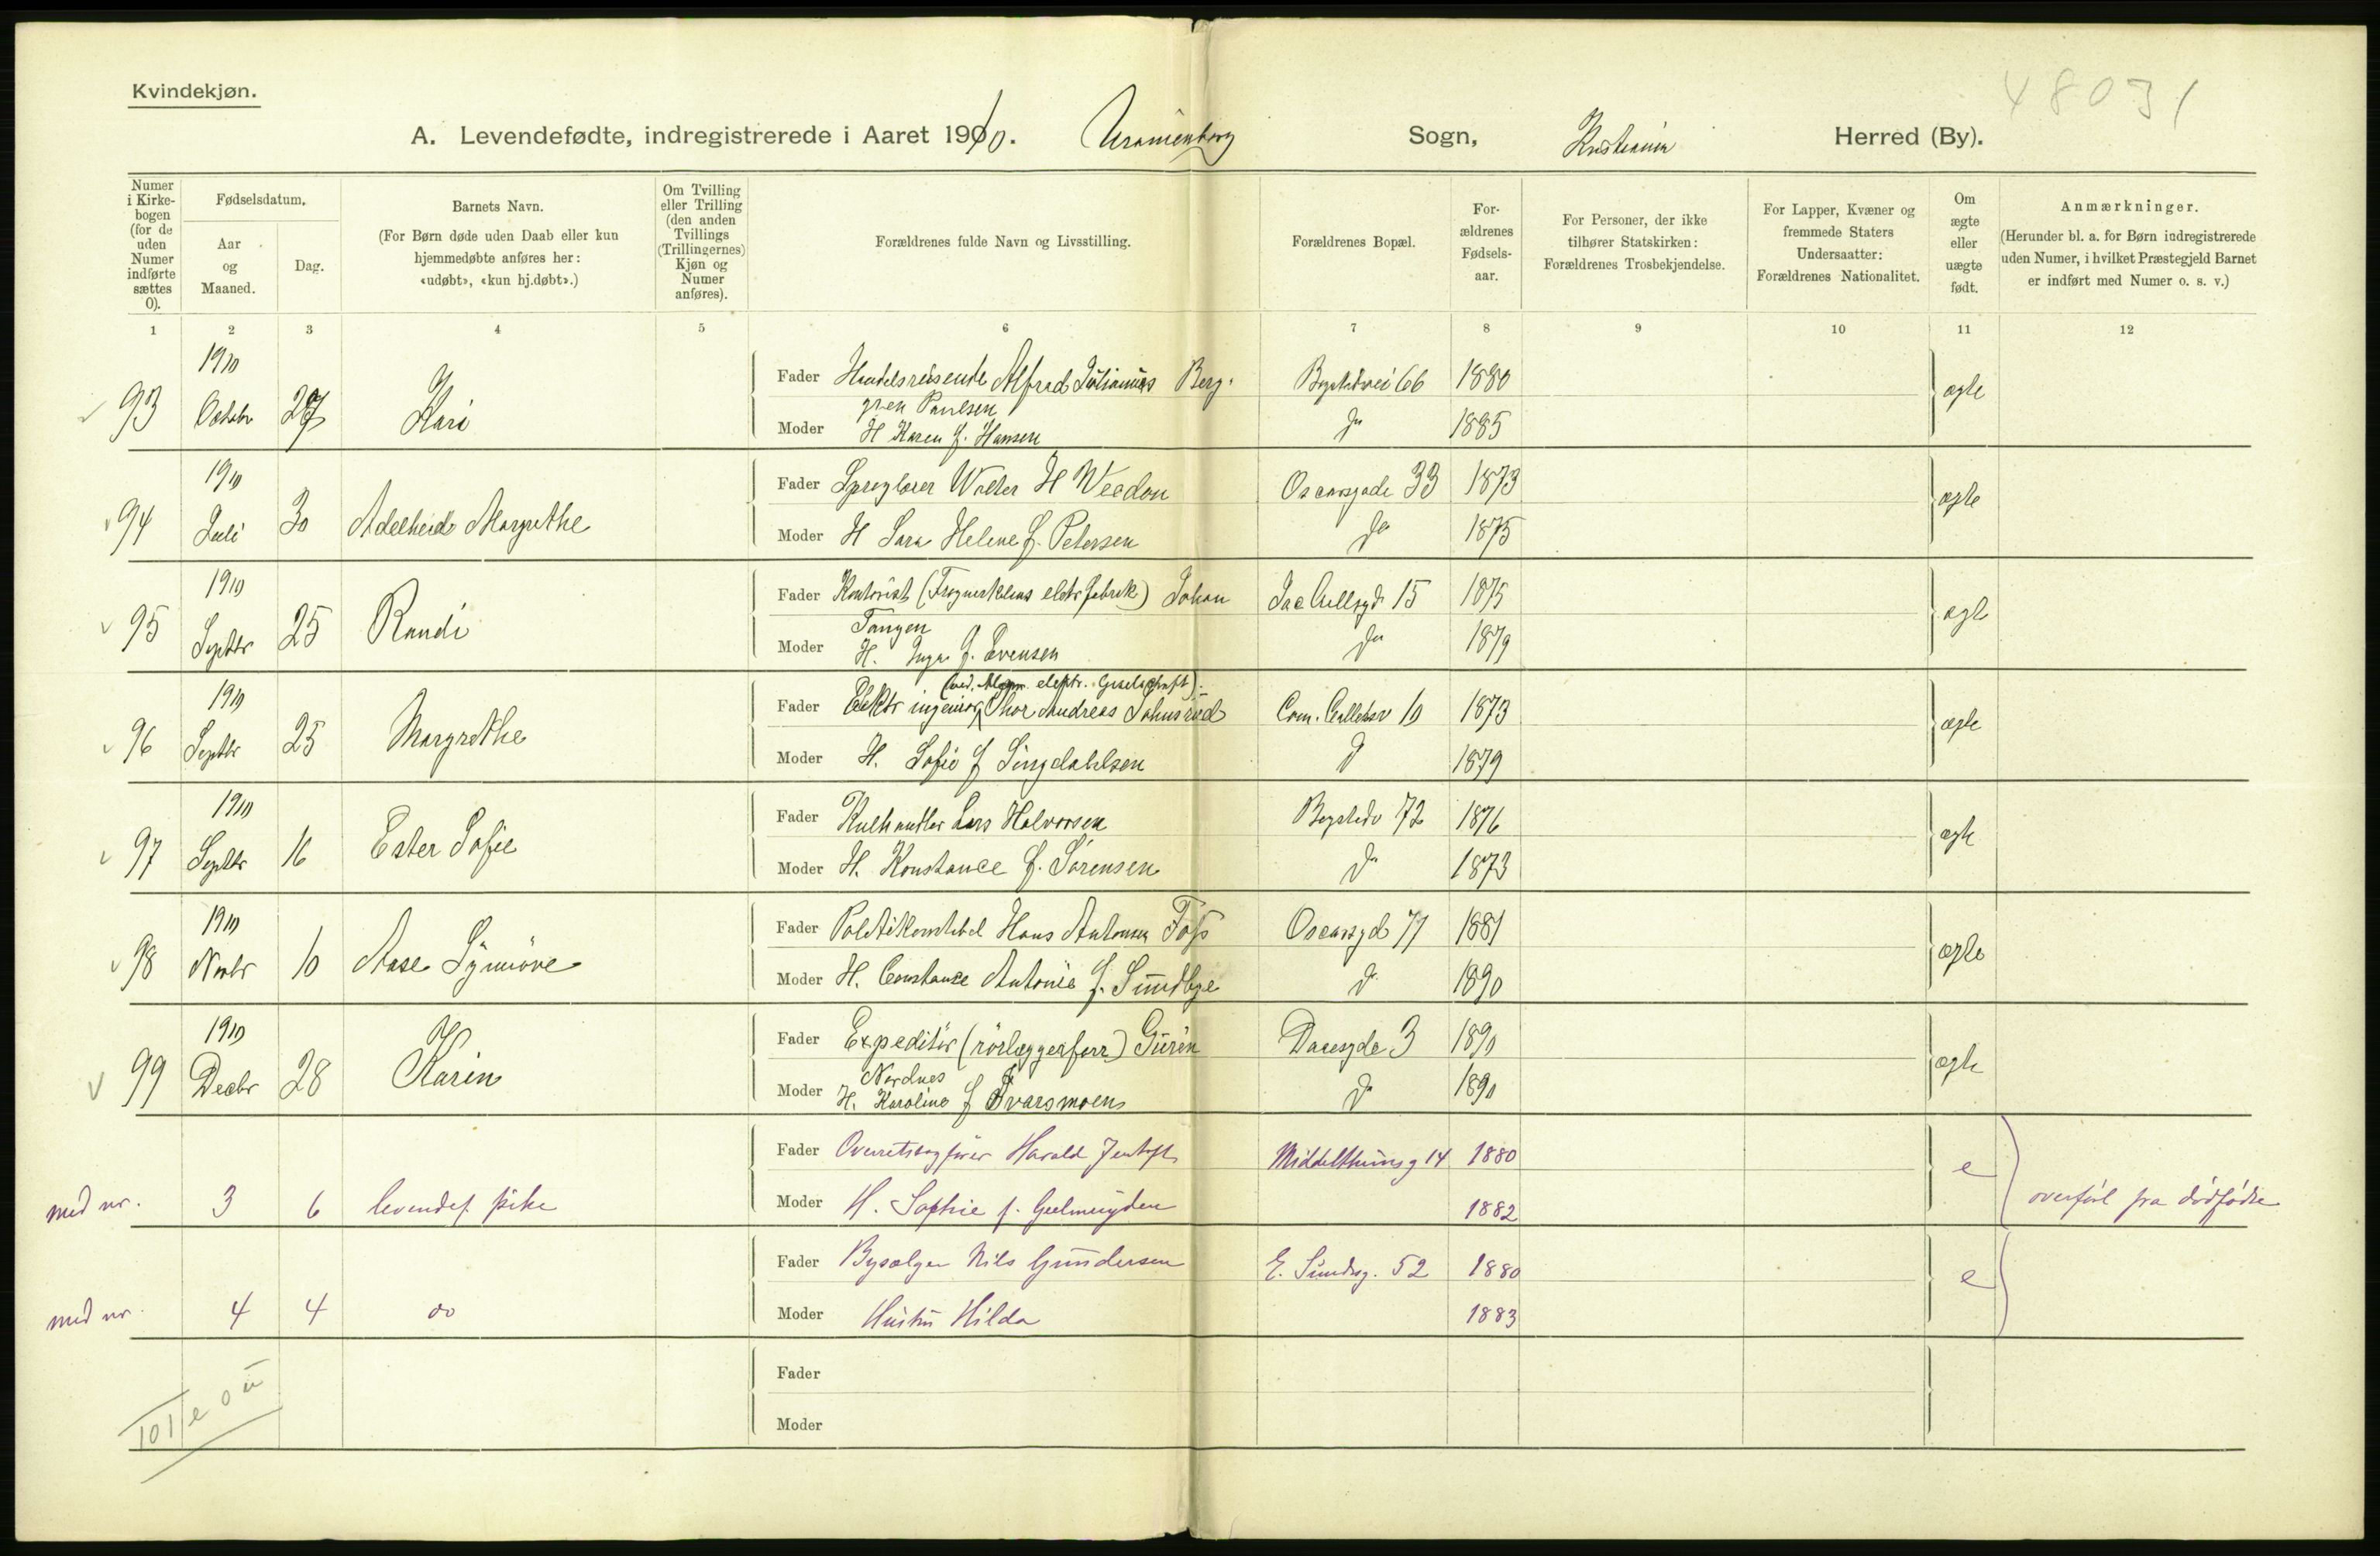 Kvindekjøn.
48031
A. Levendefødte, indregistrerede i Aaret 1910. Uranienborg Sogn, Kristiania Herred (By).
Numer i Kirkebogen (for de uden Numer indførte sættes 0).
Fødselsdatum.
Aar og Maaned.
Dag.
Barnets Navn.
(For Børn døde uden Daab eller kun hjemmedøbte anføres her: «udøbt», «kun hj.døbt».)
Om Tvilling eller Trilling (den anden Tvillings (Trillingernes) Kjøn og Numer anføres).
Forældrenes fulde Navn og Livsstilling.
Forældrenes Bopæl.
Forældrenes Fødselsaar.
For Personer, der ikke tilhører Statskirken: Forældrenes Trosbekjendelse.
For Lapper, Kvæner og fremmede Staters Undersaatter: Forældrenes Nationalitet.
Om ægte eller uægte født.
Anmærkninger.
(Herunder bl. a. for Børn indregistrerede uden Numer, i hvilket Præstegjeld Barnet er indført med Numer o. s. v.)
1 2 3 4 5 6 7 8 9 10 11 12
1910
Fader Handelsreisende Alfred Julianus Berg- Bogstadvei 66 1880
93 Octobr 27 Kari ægte
gren Paulsen
Moder H Karen f. Hansen do 1885
1910
Fader Sproglærer Walter H Weedon Oscarsgade 33 1873
94 Juli 30 Adelheid Margrethe ægte
Moder H Sara Helene f. Petersen do 1875
1910
Fader Kontorist (Frognerkilens elektr fabrik) Johan Jac Aallsgd 15 1875
95 Septbr 25 Randi ægte
Tangen
Moder H. Inga f. Evensen do 1879
1910
(ved. elektr. Geselschaft)
Fader Elektr ingeniør Thor Andreas Johnsrud Com. 10 1873
96 Septbr 25 Margrethe ægte
Moder H. Sofie f Singdahlsen d 1879
1910
Fader Kulhandler Lars Halvorsen Bogstadv 72 1876
97 Septbr 16 Ester Sofie ægte
Moder H. Konstance f. Sørensen do 1873
1910
Fader Politikonstabel Hans Antonsen Foss Oscarsgd 71 1881
98 Novbr 10 Aase Synnöve ægte
Moder H. Constance Antonie f. Sundbye do 1890
1910
Fader Expeditör (rörlæggerforr.) Gurin Daasgde 3 1890
99 Decbr 28 Karin ægte
Nordnes
Moder H. Karoline f Ivarsmoen do 1890
Fader Overretssagfører Harald Jentoft Middelthunsg 14 1880
med nr. 3 6 levendef. pike e overført fra dødfødte
Moder H. Sophie f. Geelmuyden 1882
Fader Bysælger Nils Gundersen E. Sundsg. 52 1880
med nr. 4 4 do e
Moder Hustru Hilda 1883
Fader
101 e 0 u
Moder